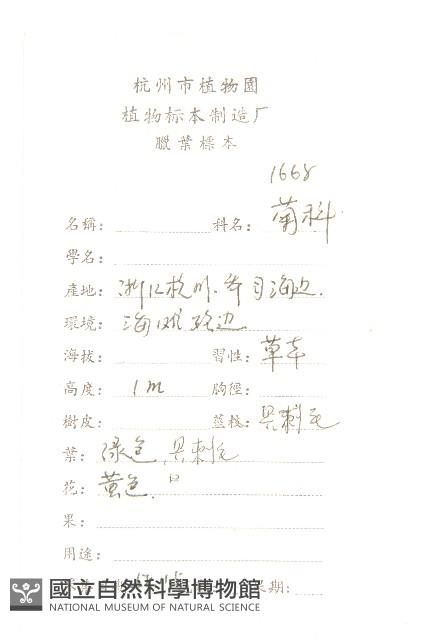 杭州市植物園
植物标本制造厂
臘葉標本
1668
名稱： 科名： 菊科
學名：
產地： 浙江杭州.
環境： 海滩路边
海拔： 習性： 草本
高度： 1m 胸徑：
樹皮： 莖棧： 具刺毛
葉： 绿色，具刺毛
花： 黄色.
果：
用途：
期：
國立自然科學博物館
NATIONAL MUSEUM OF NATURAL SCIENCE